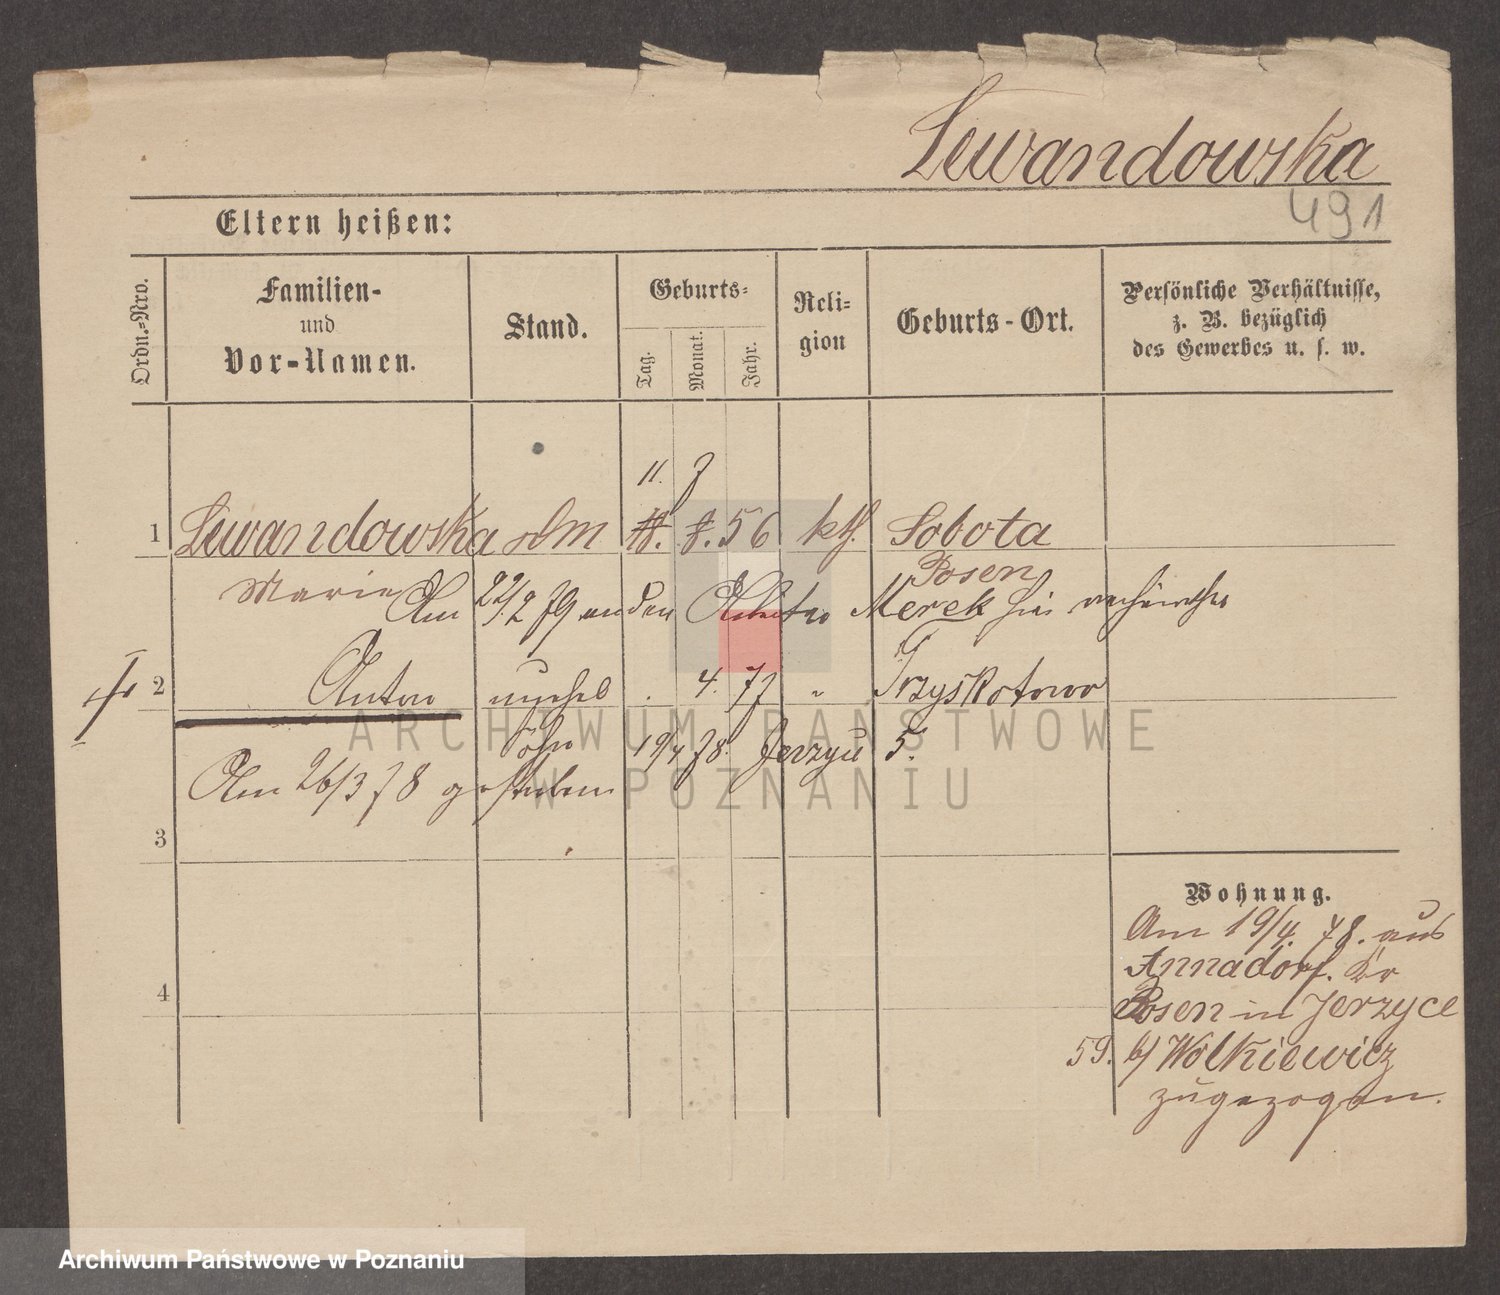 Lewandowska
491
Eltern heißen:
Ordn.=Nro.
Familien-
und
Vor-Namen.
Stand.
Geburts=
Tag.
Monat.
Jahr.
Reli-
gion
Geburts-Ort.
Persönliche Verhältnisse,
z. B. bezüglich
des Gewerbes u. s. w.
11. 7
1 Lewandowska 56 kth. Sobota
Marie Posen
Am 22/2 79 an den Arbeiter Merek hier verheirathet
2 Anton unehel 4. 77 " Trzyskotowo
Sohn 19/4 78. Jerzyce 5.
Am 26/3 78 gestorben
3
4
Wohnung.
Am 19/4. 78. aus
Annadorf. Kr
Posen in Jerzyce
59. b/ Wolkiewicz
zugezogen.
ARCHIWUM PAŃSTWOWE
W POZNANIU
Archiwum Państwowe w Poznaniu